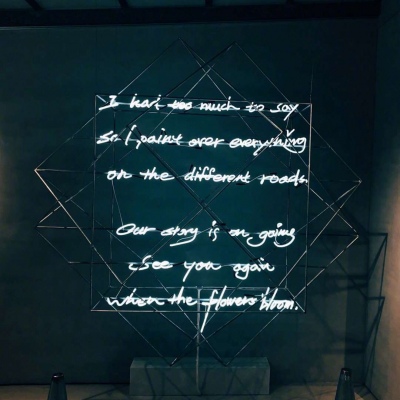 I had too much to say
So I paint over everything
on the different roads.
Our story is on going
See you again
when the flowers bloom.